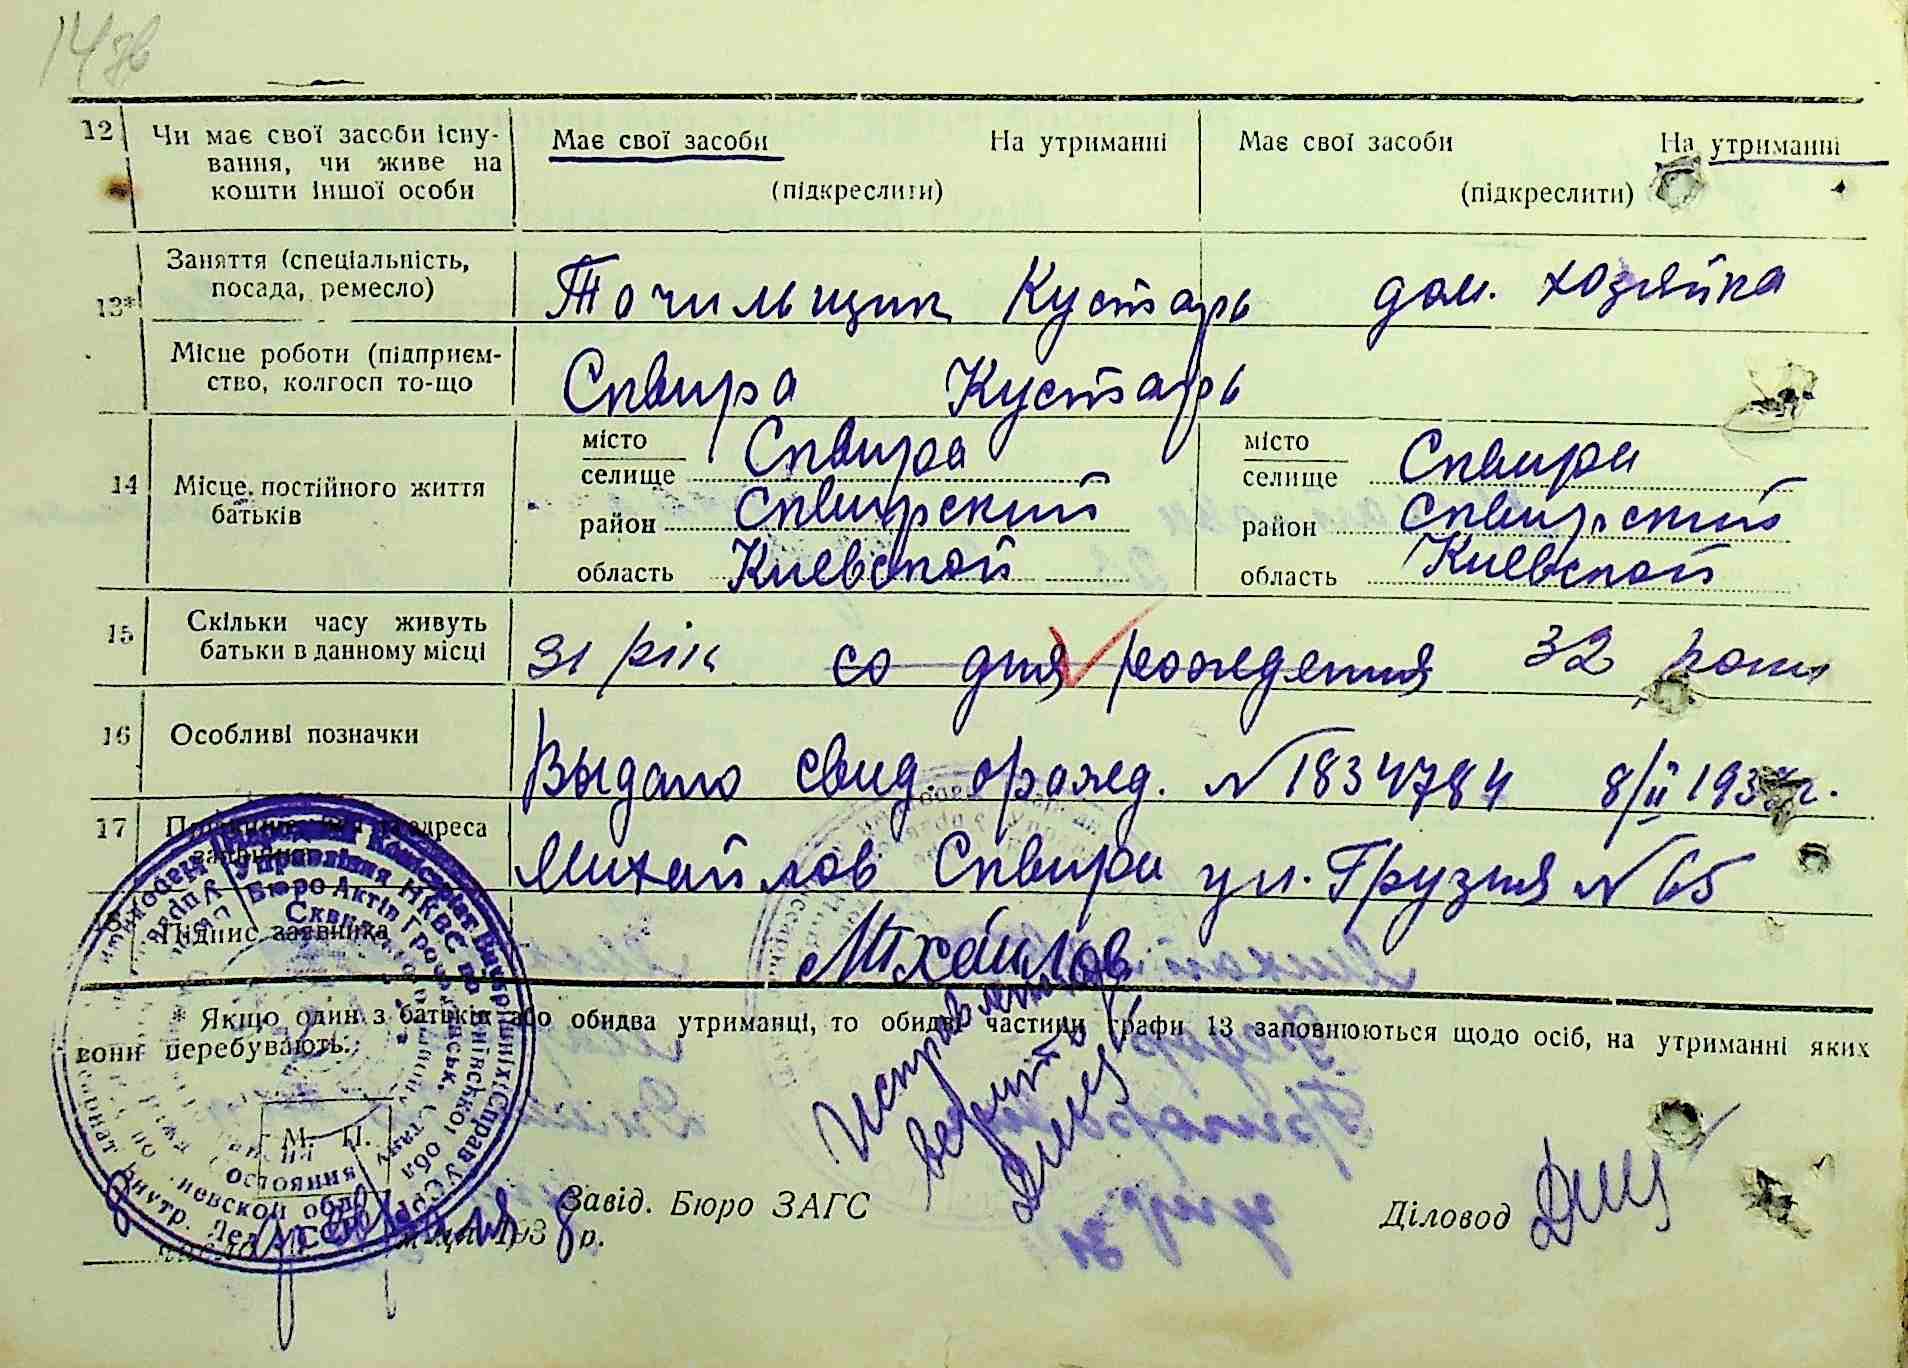 14 зв
12 Чи має свої засоби існу-
вання, чи живе на
кошти іншої особи
Має свої засоби На утриманні
(підкреслити)
Має свої засоби На утриманні
(підкреслити)
13* Заняття (спеціальність,
посада, ремесло)
Точильщик Кустарь дом. хозяйка
Місце роботи (підприєм-
ство, колгосп то-що
Сквира Кустарь
14 Місце постійного життя
батьків
місто
селище Сквира
район Сквирский
область Киевской
місто
селище Сквира
район Сквирский
область Киевской
15 Скільки часу живуть
батьки в данному місці
31 рік со дня рождения 32 роки
16 Особливі позначки
Выдано свид. о рожд. № 1834784 8/II 1938 г.
17 адреса
Михайлов Сквира ул. Грузня № 65
Підпис заявника
Міхайлов
* Якщо один з батьків або обидва утриманці, то обидві частини графи 13 заповнюються щодо осіб, на утриманні яких
вони перебувають.
Исправленному
верить
М. П.
Завід. Бюро ЗАГС
Діловод
8 193 8 р.